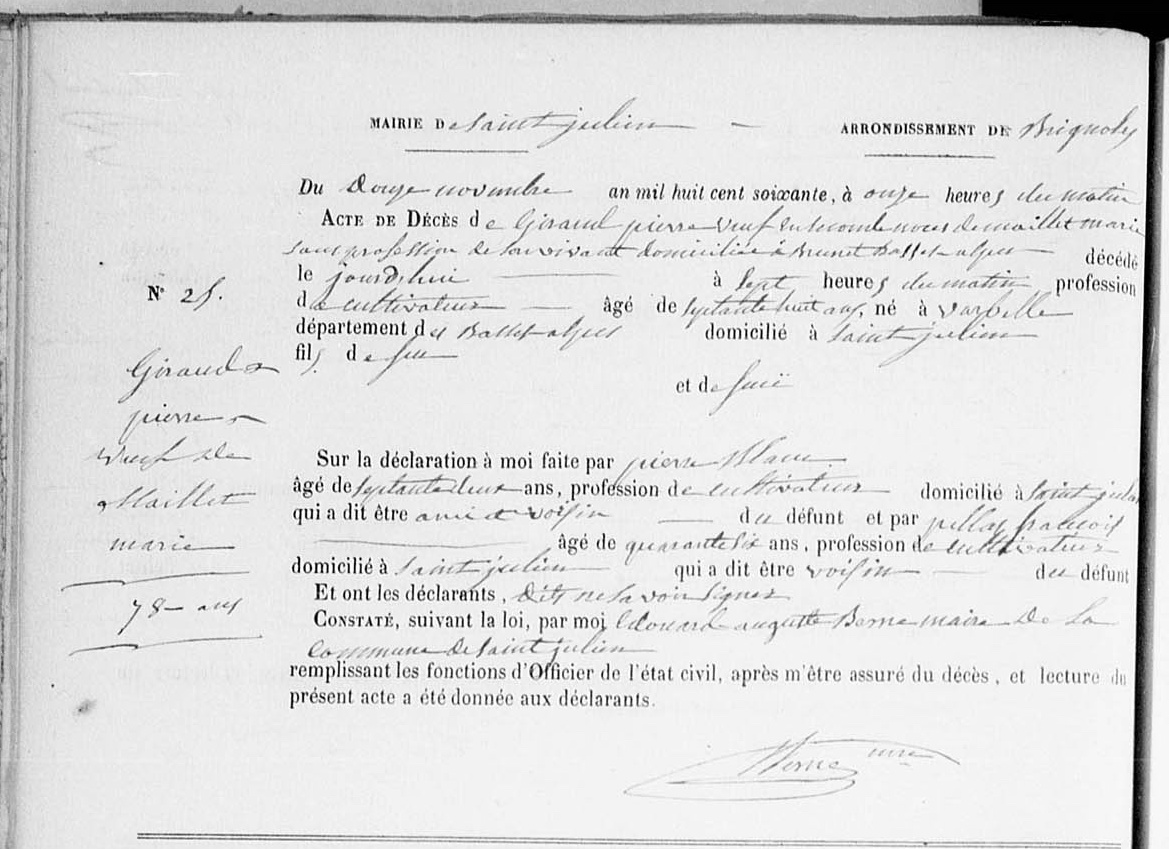 MAIRIE De Saint julien ARRONDISSEMENT DE Brignoles
Du Douze novembre an mil huit cent soixante, à onze heures du matin
ACTE DE DÉCÈS de Giraud pierre veuf en seconde noces de maillet marie
sans profession de son vivant domiciliée à Brunet Basses-alpes décédé
le jourd'hui à Sept heures du matin profession
de cultivateur âgé de septante huit ans, né à
département des Basses alpes domicilié à saint julien
fils de feu
et de
N° 25.
Giraud
pierre
veuf de
Maillet
marie
78 ans
Sur la déclaration à moi faite par pierre Blanc
âgé de septante deux ans, profession de cultivateur domicilié à saint julien
qui a dit être ami et voisin du défunt et par françois
âgé de quarante six ans, profession de cultivateur
domicilié à saint julien qui a dit être voisin du défunt
Et ont les déclarants, dits ne savoir signer
CONSTATÉ, suivant la loi, par moi Edouard auguste Berne maire De La
commune de Saint julien
remplissant les fonctions d'Officier de l'état civil, après m'être assuré du décès, et lecture du
présent acte a été donnée aux déclarants.
Berne mre